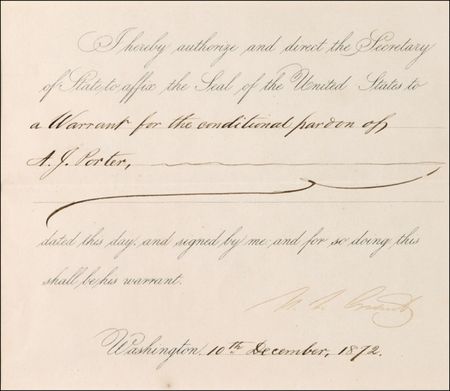 I hereby authorize and direct the Secretary
of State to affix the Seal of the United States to
a Warrant for the conditional pardon of
A. J. Porter,
dated this day, and signed by me and for so doing this
shall be his warrant.
U. S. Grant
Washington, 10th December, 1872.